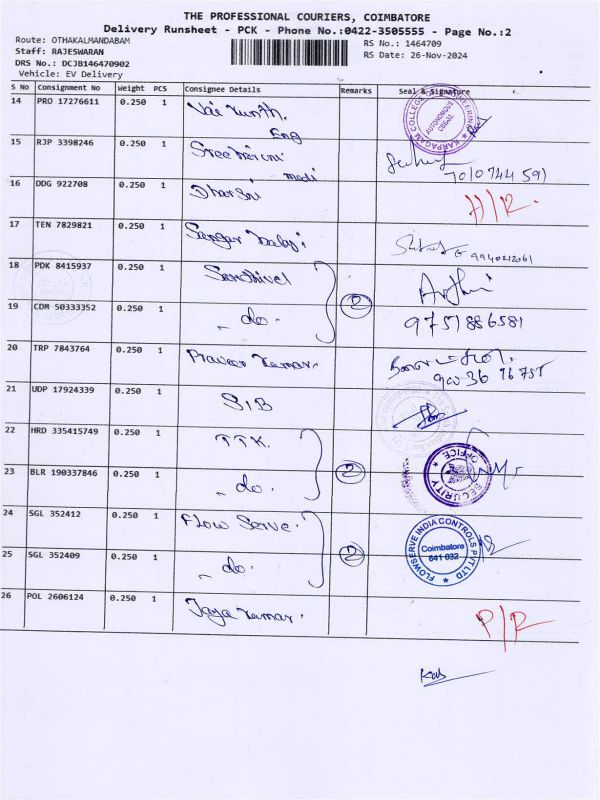 THE PROFESSIONAL COURIERS, COIMBATORE
Delivery Runsheet - PCK - Phone No.:0422-3505555 - Page No.:2
Route: OTHAKALMANDABAM
RS No.: 1464709
Staff: RAJESWARAN
RS Date: 26-Nov-2024
DRS No.: DCJB146470902
Vehicle: EV Delivery
S No Consignment No Weight PCS Consignee Details Remarks Seal & Signature
14 PRO 17276611 0.250 1
Eng
KARPAGAM COLLEGE ENGINEERING
AUTONOMOUS
15 RJP 3398246 0.250 1
16 DDG 922708 0.250 1
17 TEN 7829821 0.250 1
18 PDK 8415937 0.250 1 Senthivel
19 CDM 50333352 0.250 1 - do - 2 9751886581
20 TRP 7843764 0.250 1 Praveen Kumar.
21 UDP 17924339 0.250 1 SIB
22 HRD 335415749 0.250 1 TTK.
SECURITY OFFICE
23 BLR 190337846 0.250 1 - do - 2
24 SGL 352412 0.250 1 Flow Serve.
FLOWSERVE INDIA CONTROLS PVT LTD
Coimbatore
641 032
25 SGL 352409 0.250 1 - do - 2
26 POL 2606124 0.250 1 Jaya Kumar. P/R